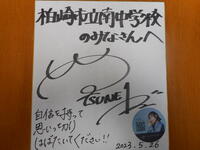 柏崎市立南中学校
のみなさんへ
TSUNEI
自信を持って
思いっきり
はばたいてください!!
2023.5.26